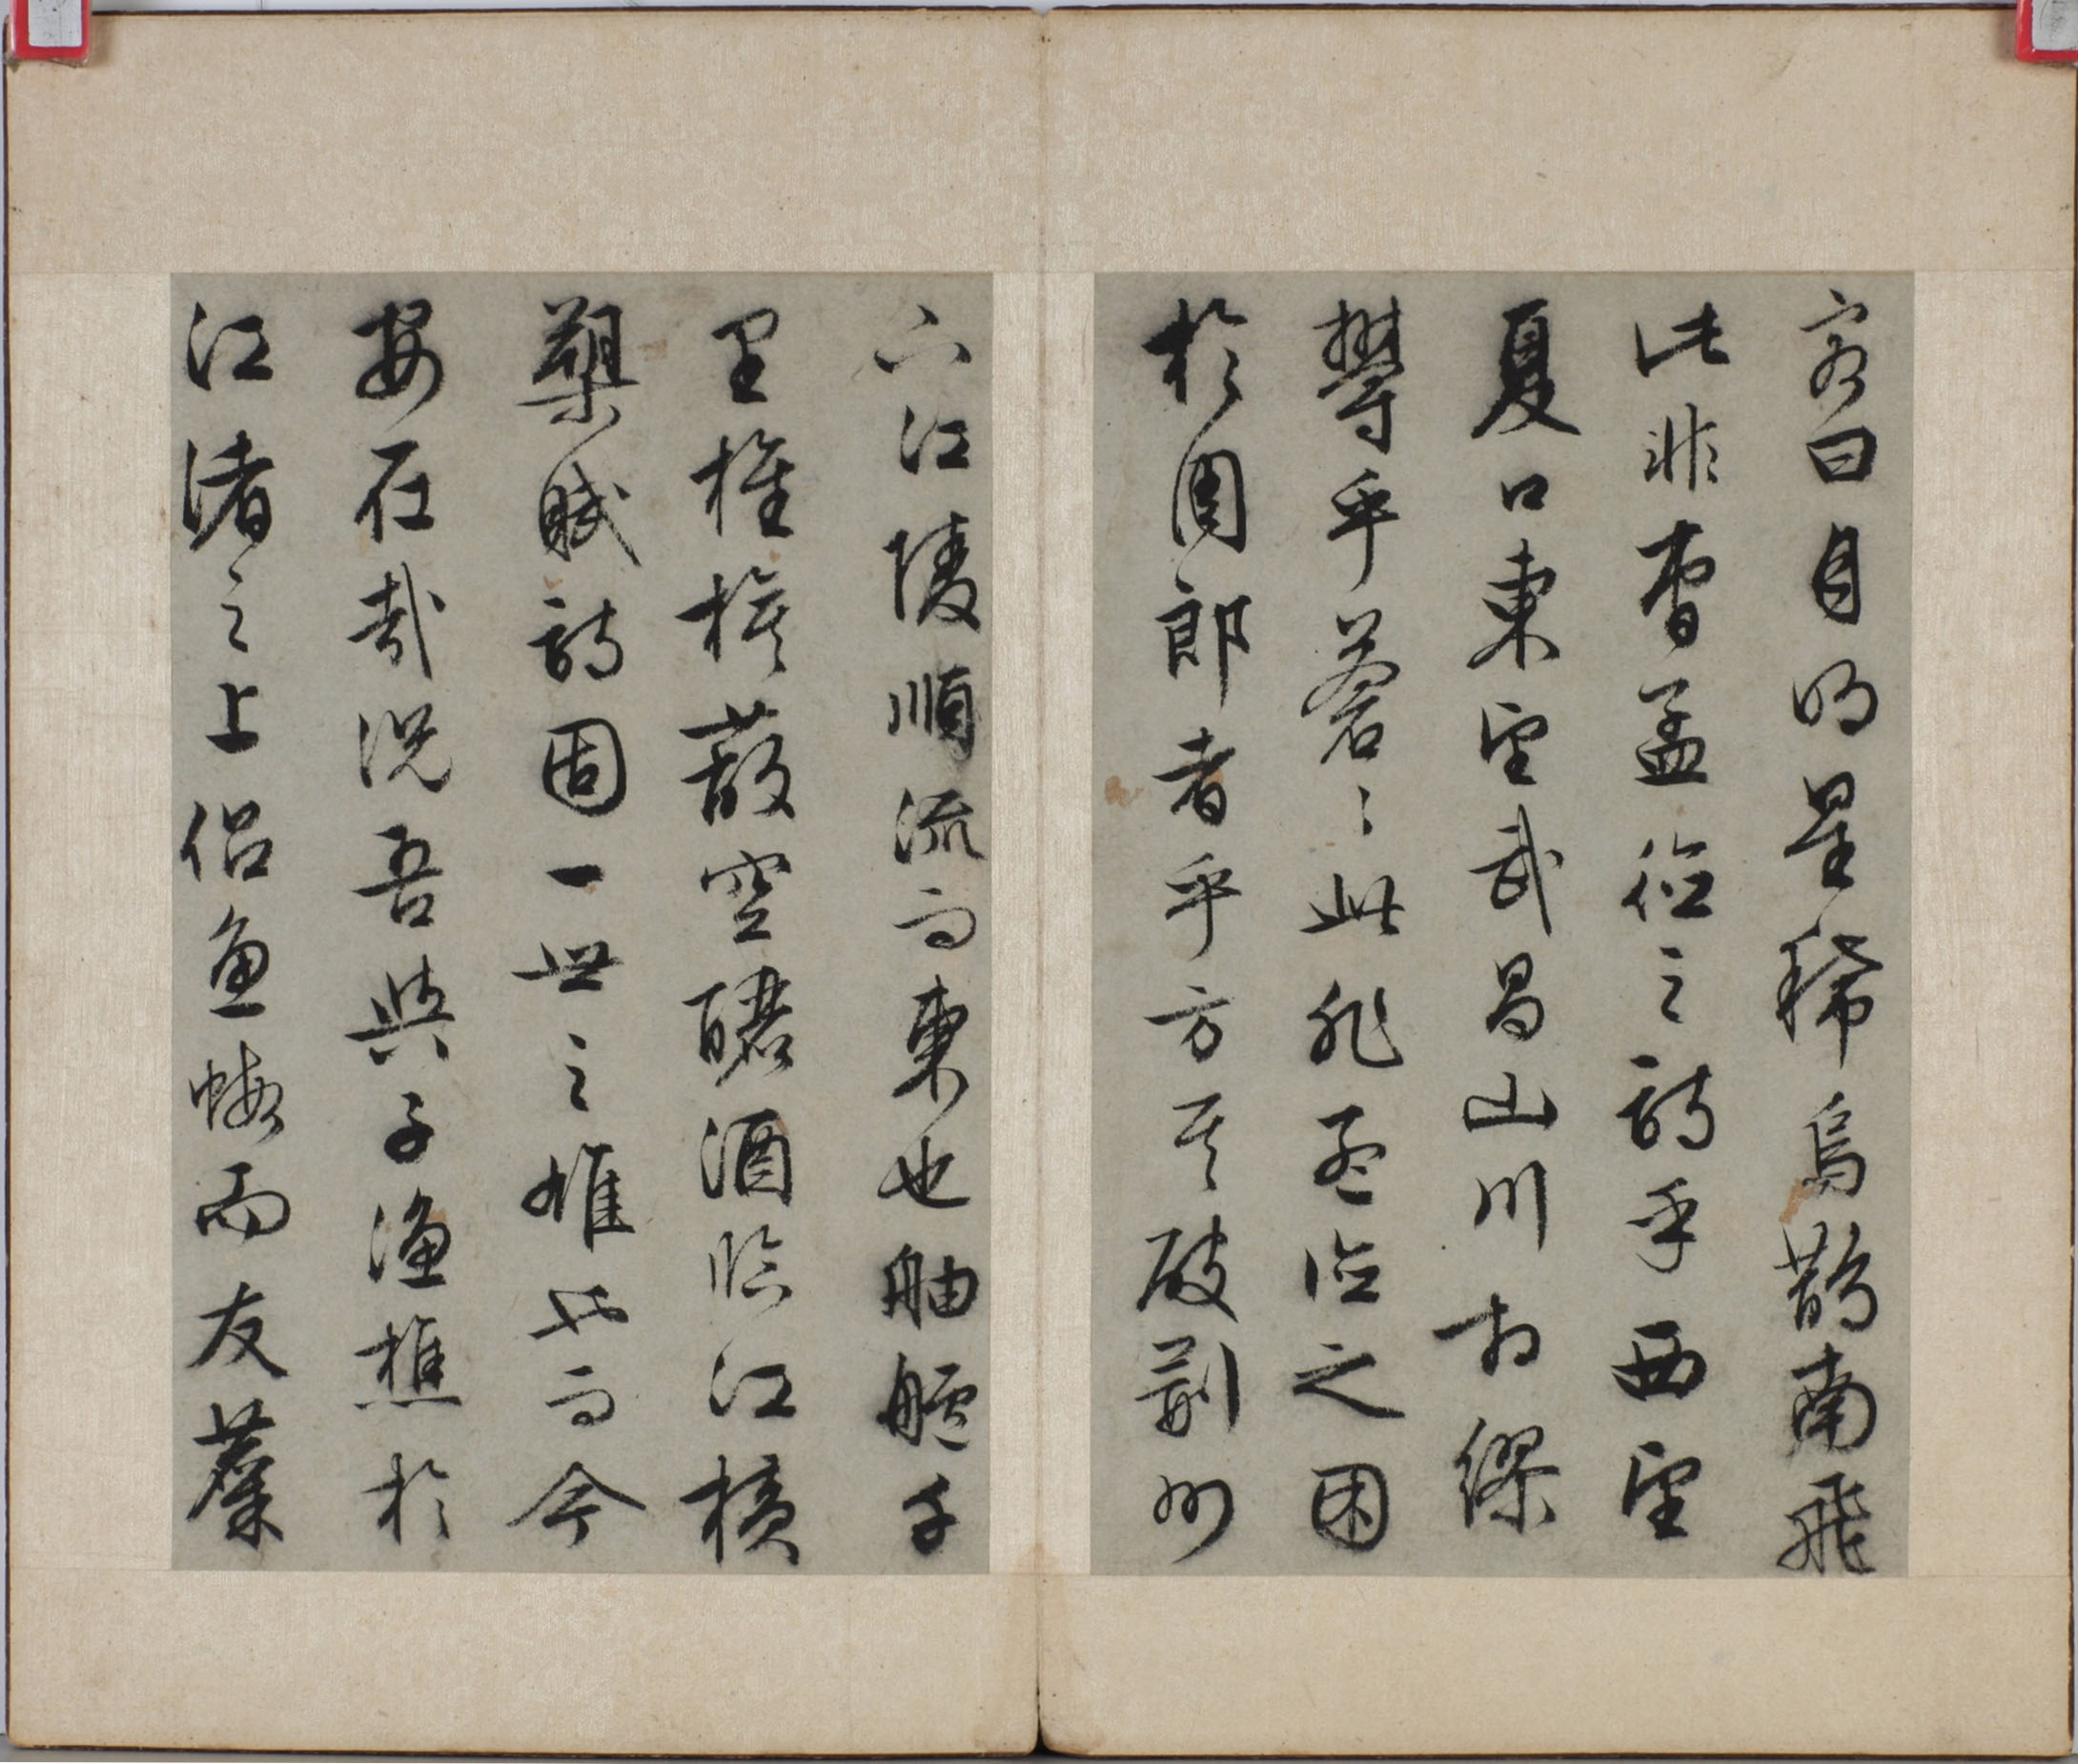 客曰月明星稀烏鵲南飛
此非曹孟德之詩乎西望
夏口東望武昌山川相繆
鬱乎蒼〻此非孟德之困
於周郎者乎方其破荊州
下江陵順流而東也舳艫千
里旌旗蔽空釃酒臨江橫
槊賦詩固一世之雄也而今
安在哉況吾與子漁樵於
江渚之上侶魚蝦而友麋